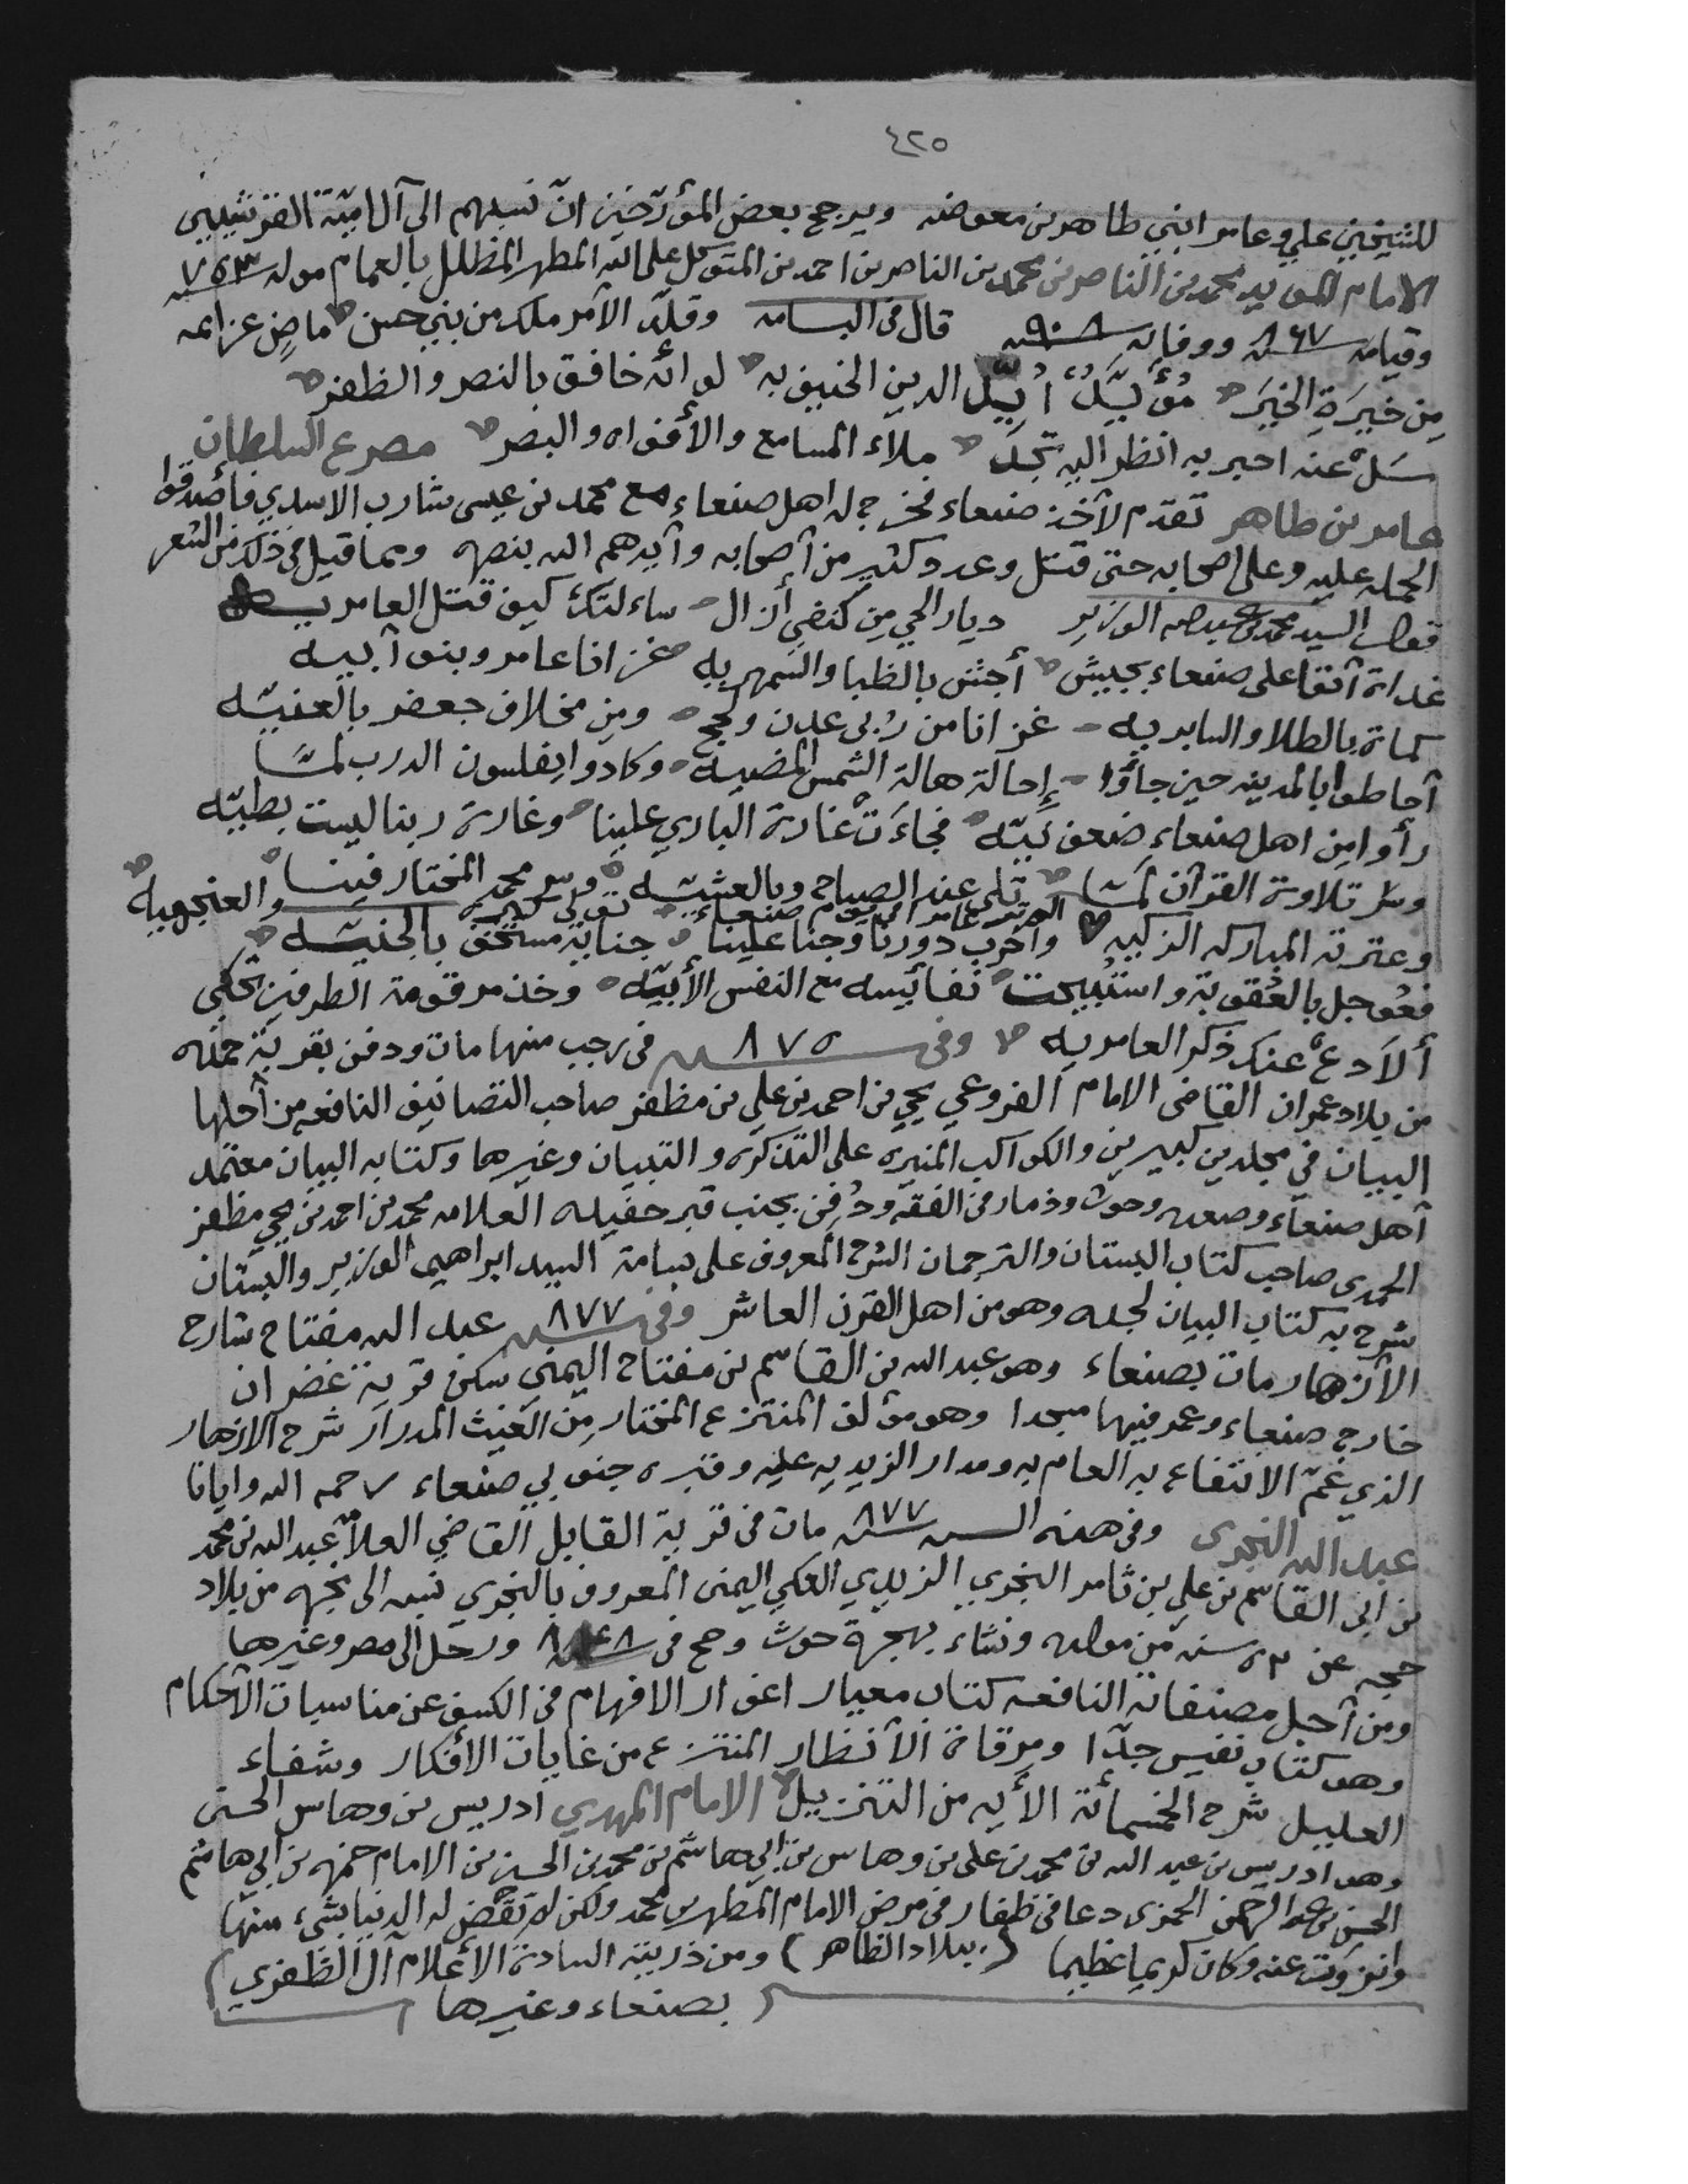 ٤٢٥
للشيخين علي وعامر ابني طاهر بن معوضه ويرجح بعض المؤرّخين انّ نسبهم الى آل اميّة القرشيين
الامام المويد محمد بن الناصر بن محمد بن الناصر بن احمد بن المتوكل على الله المطهر المظلل بالغمام مولد سنه
وقيامه سنه ٨٦٧ ووفاته سنه ٩٠٨ قال في البسامه وقلّد الأمر ملك من بني حسن ماضٍ عزائمه
مِن خِيرَةِ الخِيَر مُؤيَّدٌ اُيِّدَ الدين الحنيف به لو انّه خافق بالنصر والظفر
سَل عنه اخبر به انظر اليه تجد ملاء المسامع والأفواه والبصر مصرع السلطان
عامر بن طاهر تقدم لأخذ صنعاء فخرج له اهل صنعاء مع محمد بن عيسى شارب الاسدي فأصدقوا
الحمله عليه وعلى اصحابه حتى قتل وعدد كثير من أصحابه وأيدهم الله بنصره ومما قيل في ذلك من الشعر
قول السيد محمد بن عبدالله الوزير ديار الحي من كنفي أزال ساءلتك كيف قتل العامريه
غداة أتقا على صنعاء بجيش أجش بالظبا والسمهريه غزانا عامر وبنو أبيه
كماة بالطلا والسابريه غزانا من رُبى عدن ولحج ومِن مخلاف جعفر بالعنيّه
أحاطوا بالمدينه حين جاؤا إحالة هالة الشمس المضييه وكادوا يفلسون الدرب لمّا
رأوا مِن اهل صنعاءِ ضعف نيّه فجاءَت غارة الباري علينا وغارة ربنا ليست بطيّه
وسر تلاوة القرآن لمّا تلى عند الصباح وبالعشيّه وسر محمد المختار فينا
وعترته المباركه الزكيه وأخرب دورنا وجنا علينا جناية مستخف بالجنيّه
فعُوجل بالعُقوبة واستُبيحت نفائسه مع النفس الأبيّه وخذ مرقومة الطرفين تحكي
ألا دع عنك ذكر العامريه وفي سنه ٨٧٥ في رجب منها مات ودفن بقرية حمده
من بلاد عمران القاضي الامام الفروعي يحيى بن احمد بن علي بن مظفر صاحب التصانيف النافعه من أجلها
البيان في مجلدين كبيرين والكواكب المنيره على التذكره والتبيان وغيرها وكتابه البيان معتمد
أهل صنعاء وصعده وحوث وذمار في الفقه ودُفِن بجنب قبر حفيده العلامه محمد بن احمد بن يحيى مظفر
الحمدي صاحب كتاب البستان والترجمان الشرح المعروف على بسامة السيد ابراهيم الوزير والبستان
شرح به كتاب البيان لجده وهو من اهل القرن العاشر وفي سنه ٨٧٧ عبد الله مفتاح شارح
الأزهار مات بصنعاء وهو عبد الله بن القاسم بن مفتاح اليمني سكن قرية غضران
خارج صنعاء وعمر فيها مسجدا وهو مؤلف المنتزع المختار مِن الغيث المدرار شرح الازهار
الذي عَمّ الانتفاع به العام به ومدار الزيديه عليه وقبره جنوبي صنعاء رحمه الله وايانا
عبد الله النجري وفي هذه السنه سنه ٨٧٧ مات في قرية القابل القاضي العلاّ عبد الله بن محمد
بن ابي القاسم بن علي بن ثامر النجري الزيدي العكي اليمني المعروف بالنجري نسبه الى نجره من بلاد
حجه عن ٥٢ سنه من مولده ونشاء بهجرة حوث وحج في سنه ٨٤٨ ورحل الى مصر وغيرها
ومن أجل مصنفاته النافعه كتاب معيار اغوار الافهام في الكشف عن مناسبات الأحكام
وهو كتاب نفيس جدّا ومِرقاة الأنظار المنتزع من غايات الأفكار وشفاء
العليل شرح الخمسمائة الأيه من التنزيل الامام المهدي ادريس بن وهاس الحسني
وهو ادريس بن عبد الله بن محمد بن علي بن وهاس بن ابي هاشم بن محمد بن الحسن بن الامام حمزه بن ابي هاشم
الحسن بن عبد الرحمن الحمزي دعا في ظفار في مرض الامام المطهر بن محمد ولكن لم تقض له الدنيا بشيء منها
وانزوت عنه وكان كريما عظيما (ببلاد الظاهر) ومن ذريته السادة الأعلام آل الظفري)
بصنعاء وغيرها